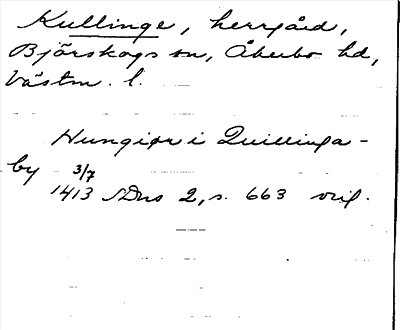 Kullinge, herrgård,
Björskogs sn, Åkerbo hd,
Västm. l.
Hungiør i Quillinga-
by 3/7
1413 SDns 2, s. 663 orig.